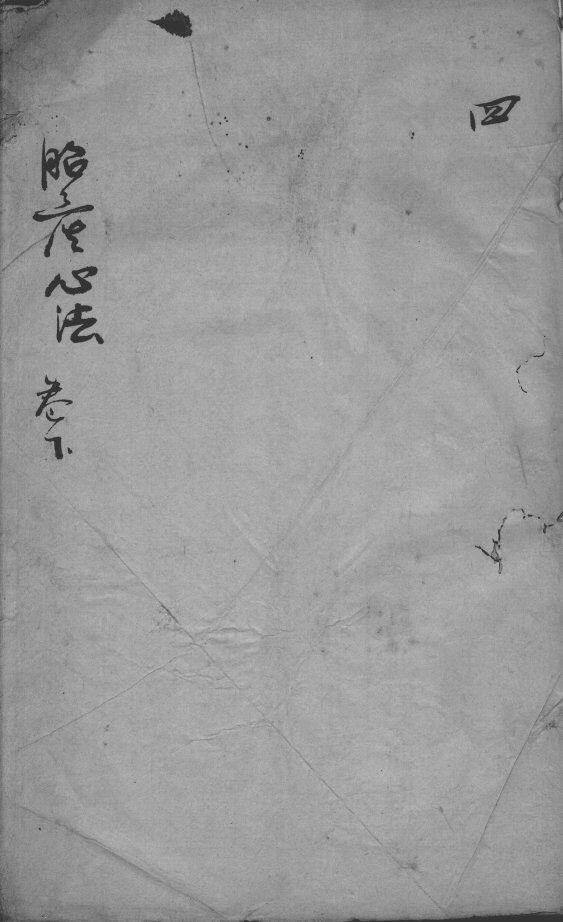 四
胎產心法 卷下